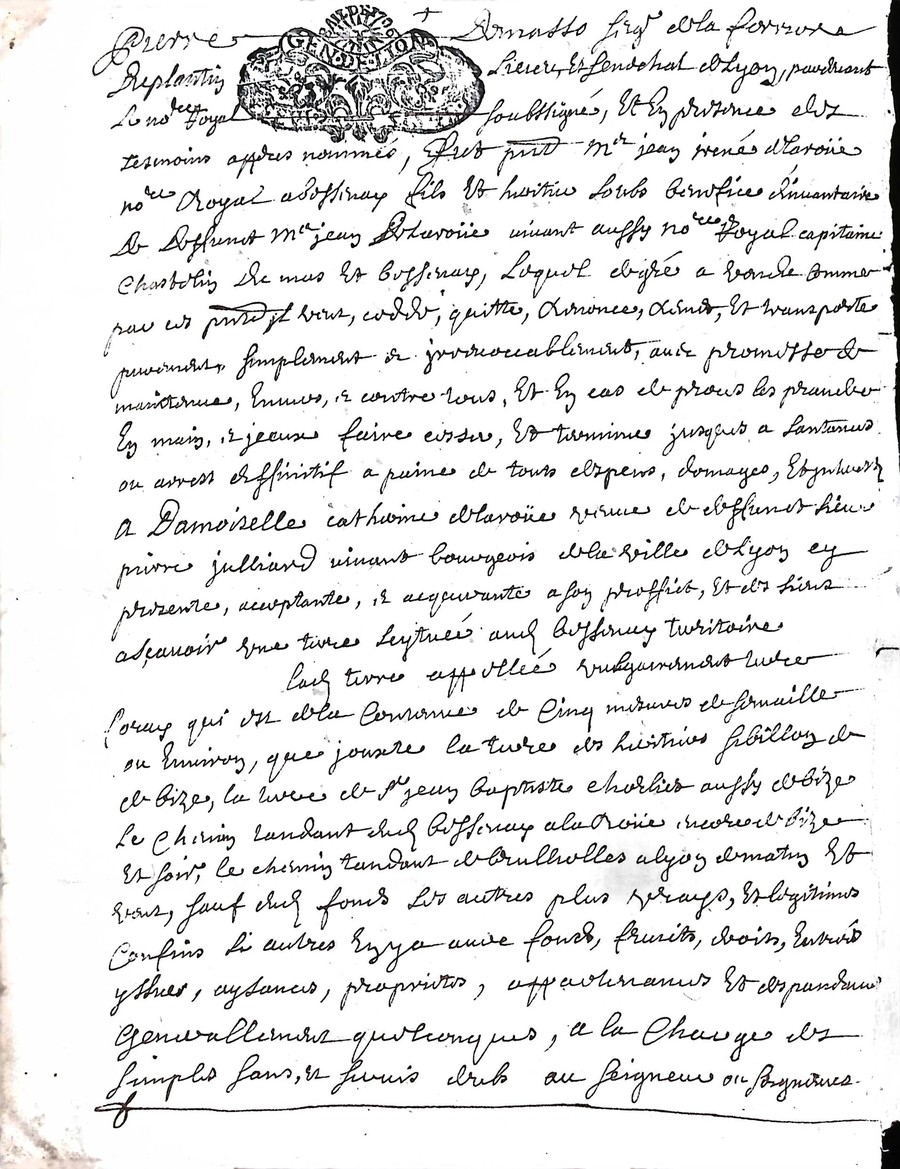 Pierre Damasso seigr de la ferrore
Deplantin GEN·DE·LION Lieut, Et Senechal de Lyon, pardevant
Le nore Royal soubssigné, Et En presence des
tesmoins appres nommés, fut pnt Mre jean irené delaroüe
nore Royal a bessenay fils Et heritier soubs benefice d'inventaire
de deffunct Mre jean delaroüe vivant aussy nore Royal capitaine
Chastelin de mas Et bessenay, Lequel de gré a vandu comme
par ces pntes il vent, cedde, quitte, Renonce, Remet, Et transporte
purement, simplement et jrrevocablement, avec promesse de
maintenir, Envers, et contre tous, Et En cas de proces les prandre
En main, et jceux faire cesser, Et terminer jusques a santance
ou arrest deffinitif a paine de tous despens, domages, Et jnterests
A Damoiselle catherine delaroüe veuve de deffunct sieur
pierre julliard vivant bourgeois de la ville de Lyon cy
presente, acceptante, et acquerante a son proffict, Et des siens
asçavoir une terre scytuée aud bessenay territoire
lad terre appellée vulgairement terre
Loras qui est de la Contenue de Cinq mesures de semaille
ou Environ, que jouxte la terre des heritiers sibillon de
de bize, la terre de Sr jean baptiste charlier aussy de bize
Le Chemin tandant dud bessenay a la Roüe encore de bize
Et soir, le chemin tandant de brulholles a lyon de matin Et
vent, sauf dud fonds Les autres plus vrays, Et legitimes
Confins si autres En y a avec fonds, fruits, droits, Entrées
yssues, aysances, proprietés, appartenances Et despandances
Generallement quelconques, a la Charge des
simples sans, et servis deubs au seigneur ou seigneurs